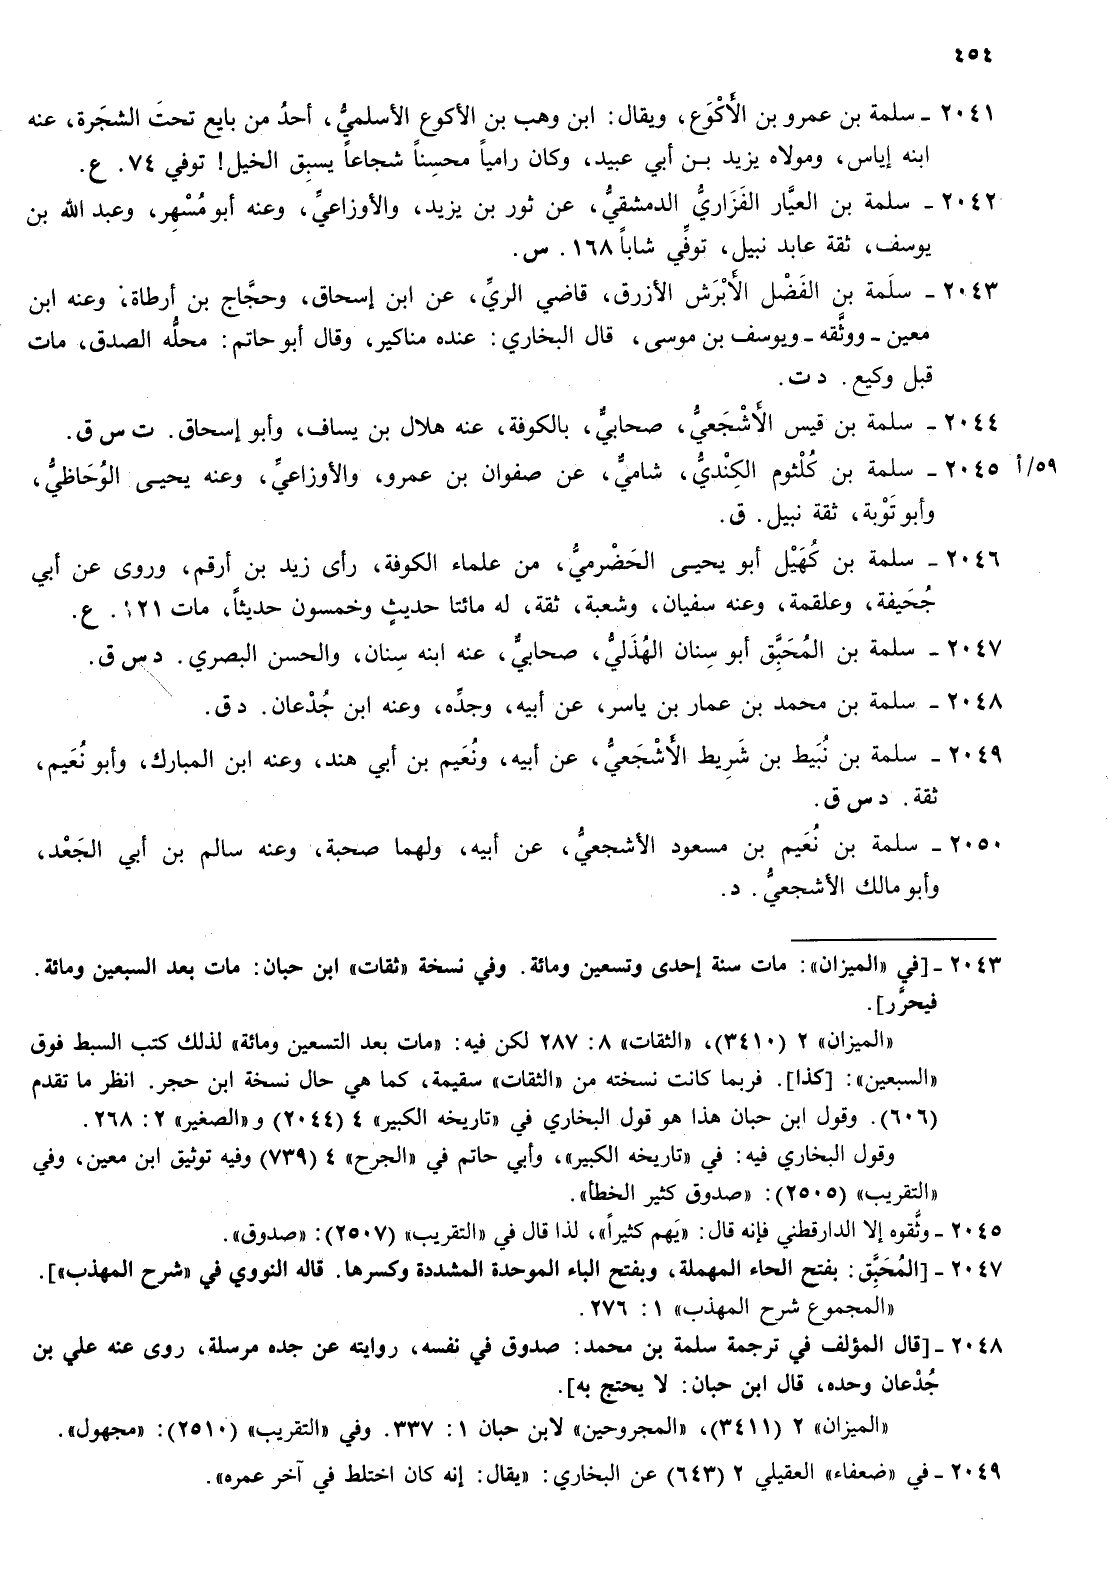 ٤٥٤
٢٠٤١ ـ سلمة بن عمرو بن الأَكْوَع، ويقال: ابن وهب بن الأكوع الأسلميُّ، أحدُ من بايع تحتَ الشجَرة، عنه
ابنه إياس، ومولاه يزيد بـن أبي عبيد، وكان رامياً محسِناً شجاعاً يسبِق الخيل! توفي ٧٤. ع.
٢٠٤٢ ـ سلمة بن العيَّار الفَزَاريُّ الدمشقيُّ، عن ثور بن يزيد، والأوزاعيِّ، وعنه أبو مُسْهِر، وعبد الله بن
يوسف، ثقة عابد نبيل، توفِّي شاباً ١٦٨. س.
٢٠٤٣ ـ سلَمة بن الفَضْل الأَبْرَش الأزرق، قاضي الريِّ، عن ابن إسحاق، وحجَّاج بن أرطاة، وعنه ابن
معين ـ ووثَّقه ـ ويوسف بن موسى، قال البخاري: عنده مناكير، وقال أبو حاتم: محلُّه الصدق، مات
قبل وكيع. د ت.
٢٠٤٤ ـ سلمة بن قيس الأَشْجَعيُّ، صحابيٌّ، بالكوفة، عنه هلال بن يساف، وأبو إسحاق. ت س ق.
٥٩/أ ٢٠٤٥ ـ سلمة بن كُلْثوم الكِنْديُّ، شاميٌّ، عن صفوان بن عمرو، والأوزاعيِّ، وعنه يحيـى الوُحَاظيُّ،
وأبو تَوْبة، ثقة نبيل. ق.
٢٠٤٦ ـ سلمة بن كُهَيْل أبو يحيـى الحَضْرميُّ، من علماء الكوفة، رأى زيد بن أرقم، وروى عن أبي
جُحَيفة، وعلقمة، وعنه سفيان، وشعبة، ثقة، له مائتا حديثٍ وخمسون حديثاً، مات ١٢١. ع.
٢٠٤٧ ـ سلمة بن المُحَبَّق أبو سِنان الهُذَليُّ، صحابيٌّ، عنه ابنه سِنان، والحسن البصري. د س ق.
٢٠٤٨ ـ سلمة بن محمد بن عمار بن ياسر، عن أبيه، وجدِّه، وعنه ابن جُدْعان. د ق.
٢٠٤٩ ـ سلمة بن نُبَيط بن شَرِيط الأَشْجَعيُّ، عن أبيه، ونُعَيم بن أبي هند، وعنه ابن المبارك، وأبو نُعَيم،
ثقة. د س ق.
٢٠٥٠ ـ سلمة بن نُعَيم بن مسعود الأشجعيُّ، عن أبيه، ولهما صحبة، وعنه سالم بن أبي الجَعْد،
وأبو مالك الأشجعيُّ. د.
٢٠٤٣ ـ [في «الميزان»: مات سنة إحدى وتسعين ومائة. وفي نسخة «ثقات» ابن حبان: مات بعد السبعين ومائة.
فيحرَّر].
«الميزان» ٢ (٣٤١٠)، «الثقات» ٨: ٢٨٧ لكن فيه: «مات بعد التسعين ومائة» لذلك كتب السبط فوق
«السبعين»: [كذا]. فربما كانت نسخته من «الثقات» سقيمة، كما هي حال نسخة ابن حجر. انظر ما تقدم
(٦٠٦). وقول ابن حبان هذا هو قول البخاري في «تاريخه الكبير» ٤ (٢٠٤٤) و«الصغير» ٢: ٢٦٨.
وقول البخاري فيه: في «تاريخه الكبير»، وأبي حاتم في «الجرح» ٤ (٧٣٩) وفيه توثيق ابن معين، وفي
«التقريب» (٢٥٠٥): «صدوق كثير الخطأ».
٢٠٤٥ ـ وثَّقوه إلا الدارقطني فإنه قال: «يَهم كثيراً»، لذا قال في «التقريب» (٢٥٠٧): «صدوق».
٢٠٤٧ ـ [المُحَبَّق: بفتح الحاء المهملة، وبفتح الباء الموحدة المشددة وكسرها. قاله النووي في «شرح المهذب»].
«المجموع شرح المهذب» ١: ٢٧٦.
٢٠٤٨ ـ [قال المؤلف في ترجمة سلمة بن محمد: صدوق في نفسه، روايته عن جده مرسلة، روى عنه علي بن
جُدْعان وحده، قال ابن حبان: لا يحتج به].
«الميزان» ٢ (٣٤١١)، «المجروحين» لابن حبان ١: ٣٣٧. وفي «التقريب» (٢٥١٠): «مجهول».
٢٠٤٩ ـ في «ضعفاء» العقيلي ٢ (٦٤٣) عن البخاري: «يقال: إنه كان اختلط في آخر عمره».